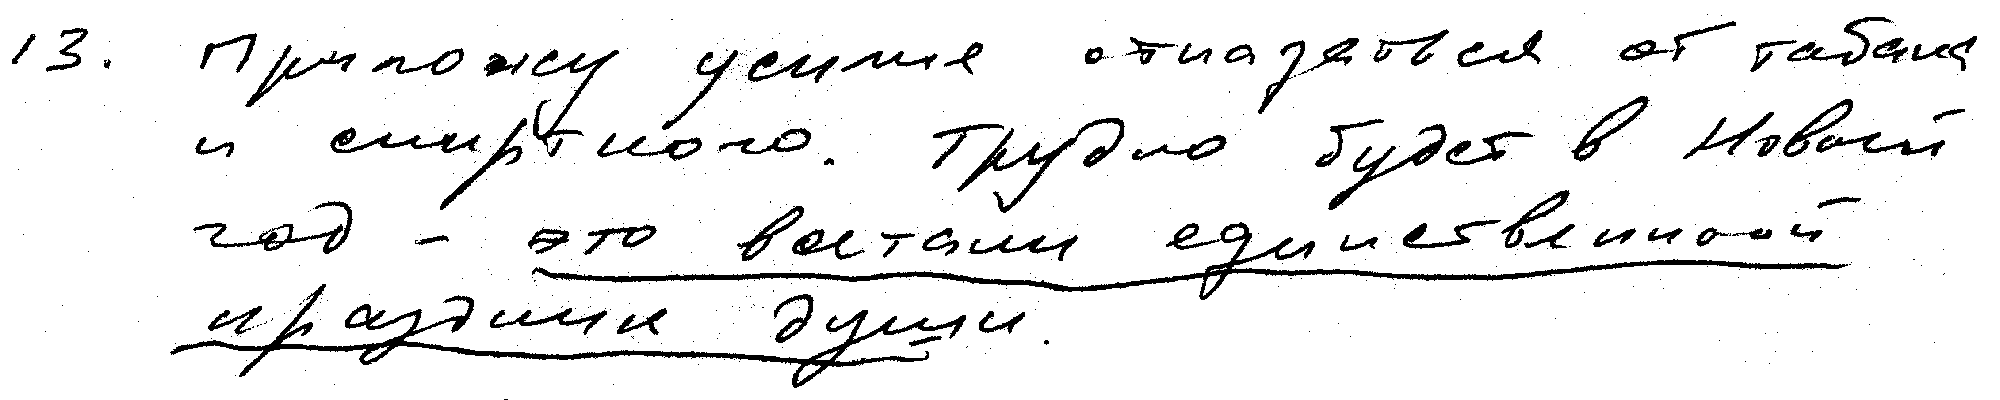 13. Приложу усилие отказаться от табака
и спиртного. Трудно будет в Новый
год - это остались единственной
праздник души.